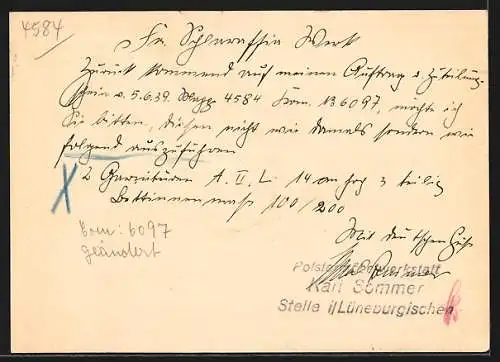 4584
Fa. Schlaraffia Werk
Zurück kommend auf meinen Auftrag u. Zuteilungs-
schein v. 5.6.39. 4584 Kom. 136097, möchte ich
Sie bitten, diesen nicht wie damals sondern wie
folgend auszuführen
2 Garnituren A. II. L. 14 cm hoch 3 teilig
Bettinnenmaß 100/200
Kom: 6097
geändert
Mit deutschen Gruß
Karl Sommer
Stelle i/Lüneburgischen